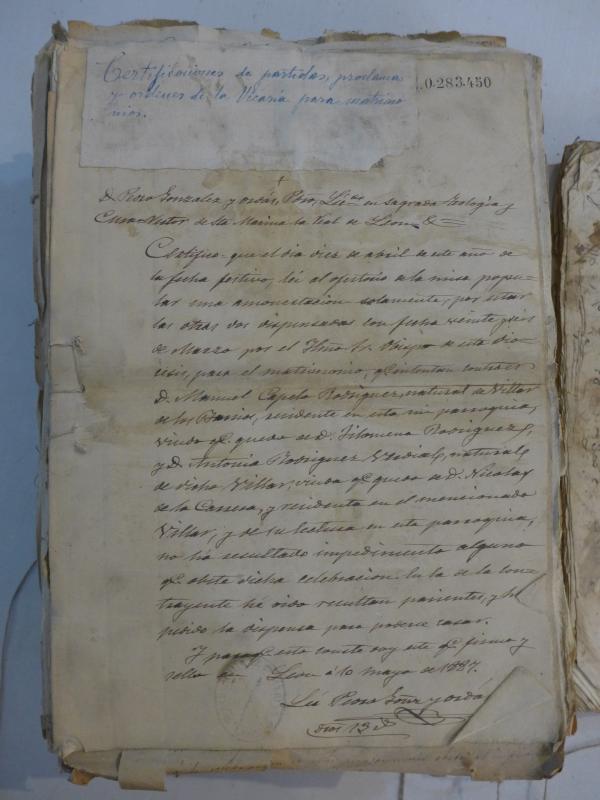 Certificaciones de partidas, proclamas
y ordenes de la Vicaría para matrimo
nios.
0.283.450
D. Pedro Gonzalez y Ordás, Pbro, Ldo en Sagrada Teologia y
Cura Rector de Sta Marina la Real de Leon &
Certifico: que el dia diez de abril de este año de
la fecha festivo, leí al ofertorio de la misa popu-
lar una amonestacion solamente, por estar
las otras dos dispensadas con fecha veinte y seis
de Marzo por el Ilmo Sr. Obispo de esta Dió-
cesis, para el matrimonio, q. intentan contraer
D. Manuel Capelo Rodriguez, natural de Villar
de los Barrios, residente en esta mi parroquia,
viudo q. quedó de D.ª Filomena Rodriguez,
y D.ª Antonia Rodriguez natural
de dicho Villar, viuda q. quedó de D. Nicolas
de la y residente en el mencionado
Villar; y de su lectura en esta parroquia,
no ha resultado impedimento alguno
q. obste dicha celebracion. En la de la con-
trayente ha oido resultan parientes, y h
pedido la dispensa para poderse casar.
Y para q. esto conste doy este q. firmo y
sello en Leon á 10 mayo de 1887.
Ldo Pedro Gonz y Ordás
dros 13